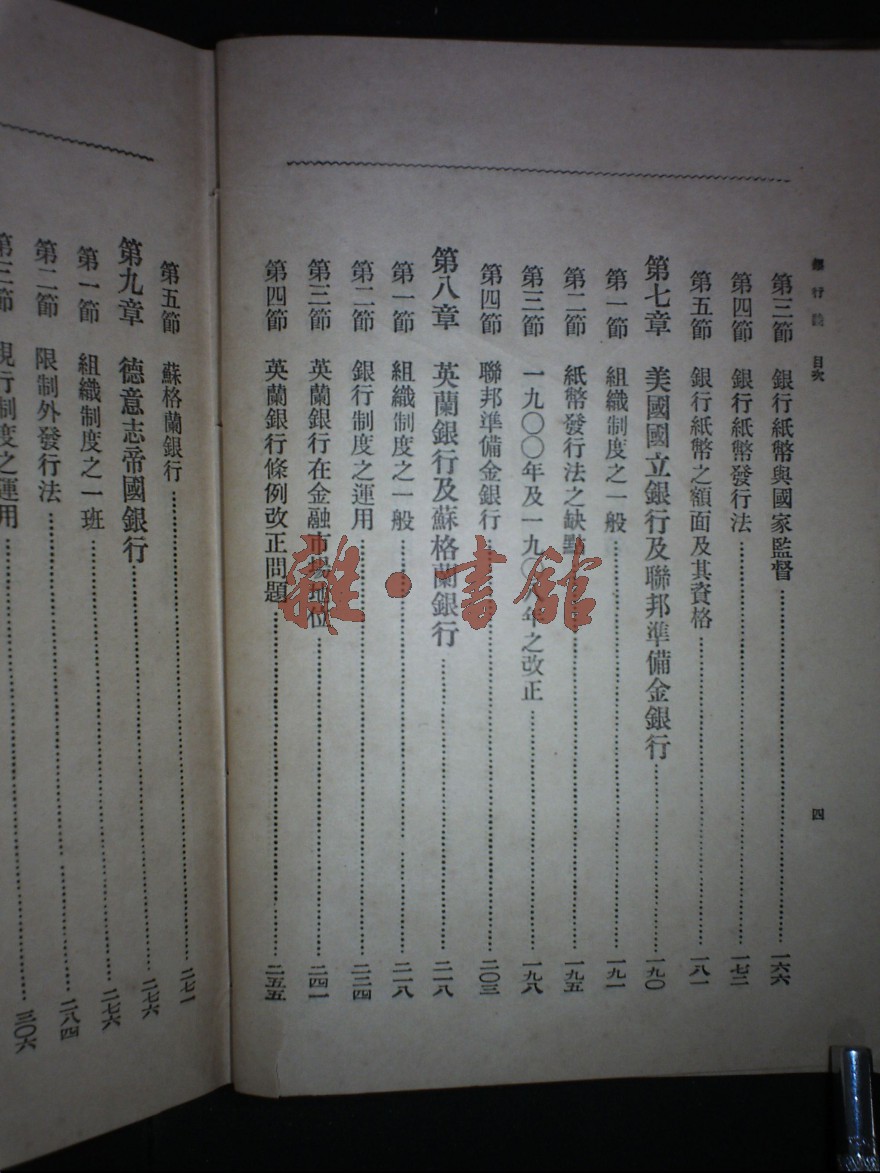 銀行論 目次 四
第三節 銀行紙幣與國家監督 一六六
第四節 銀行紙幣發行法 一七二
第五節 銀行紙幣之額面及其資格 一八一
第七章 美國國立銀行及聯邦準備金銀行 一九〇
第一節 組織制度之一般 一九一
第二節 紙幣發行法之缺點 一九五
第三節 一九〇〇年及一九〇八年之改正 一九八
第四節 聯邦準備金銀行 二〇三
第八章 英蘭銀行及蘇格蘭銀行 二一八
第一節 組織制度之一般 二一八
第二節 銀行制度之運用 二二四
第三節 英蘭銀行在金融市場地位 二四一
第四節 英蘭銀行條例改正問題 二五五
第五節 蘇格蘭銀行 二七一
第九章 德意志帝國銀行 二七六
第一節 組織制度之一班 二七六
第二節 限制外發行法 二八四
第三節 現行制度之運用 三〇六
雜·書館